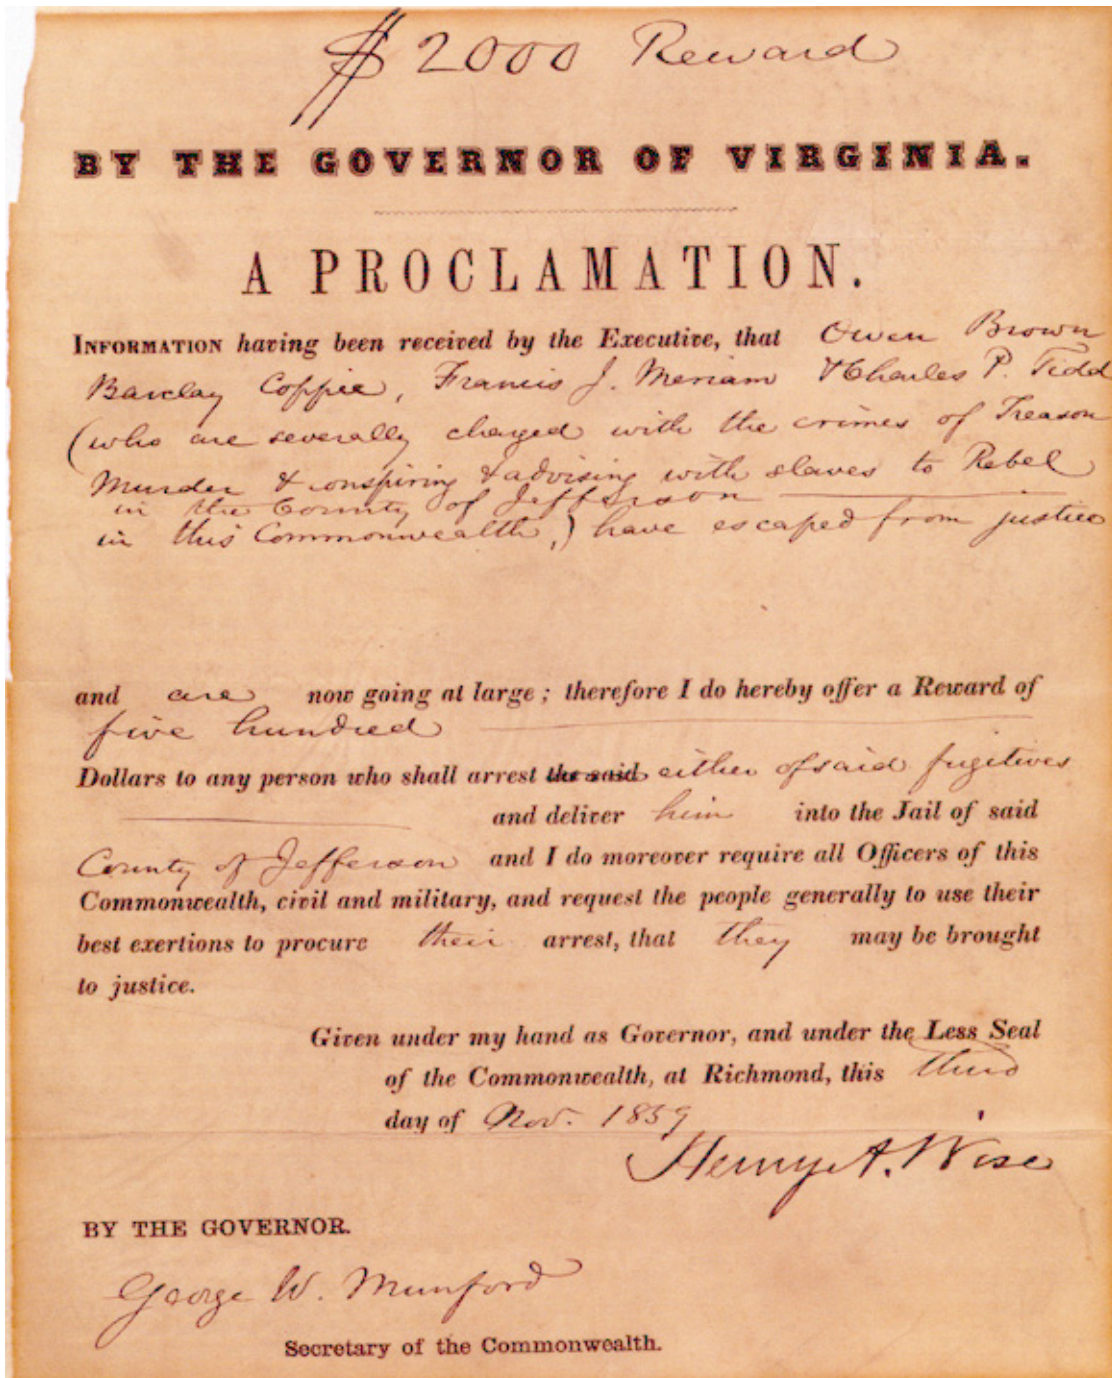 $2000 Reward
BY THE GOVERNOR OF VIRGINIA.
A PROCLAMATION.
INFORMATION having been received by the Executive, that Owen Brown
Barclay Coppie, Francis J. Meriam & Charles P. Tidd
(who are severally charged with the crimes of Treason
Murder & conspiring & advising with slaves to Rebel
in the County of Jefferson
in this Commonwealth,) have escaped from justice
and are now going at large; therefore I do hereby offer a Reward of
five hundred
Dollars to any person who shall arrest the said either of said fugitives
and deliver him into the Jail of said
County of Jefferson and I do moreover require all Officers of this
Commonwealth, civil and military, and request the people generally to use their
best exertions to procure their arrest, that they may be brought
to justice.
Given under my hand as Governor, and under the Less Seal
of the Commonwealth, at Richmond, this third
day of Nov. 1859
Henry A. Wise
BY THE GOVERNOR.
George W. Munford
Secretary of the Commonwealth.